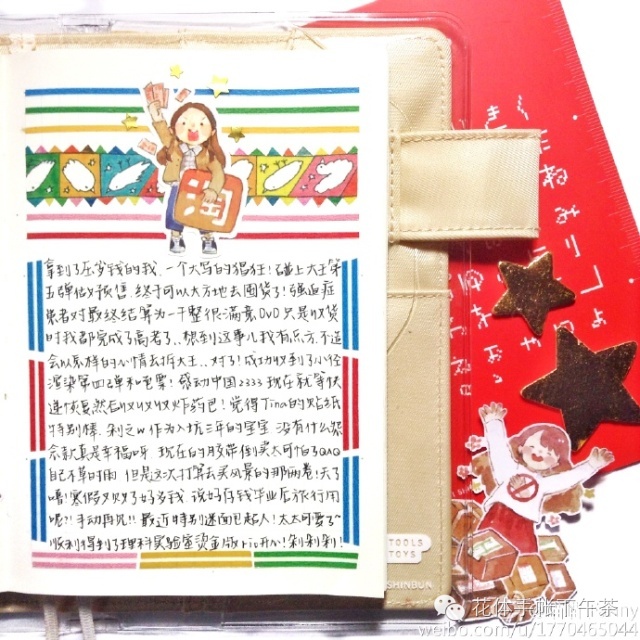 淘
拿到了压岁钱的我.一个大写的猖狂!碰上大王第
五弹做预售.终于可以大方地去囤货了!强迫症
患者对最终结算为一千整很满意OVO只是收货
时我都完成了高考了..想到这事儿我有
会以怎样的心情去拆大王..对了!成功收到了小径
渲染第四2弹和 感动中国2333现在就等快
递恢复然后收收收炸药包!觉得Tina的贴纸
特别棒.剁之w作为入坑三年的宝宝 没有什么
余就真是幸福呀 现在的胶带倒卖太可怕了QAQ
自己不草时雨 但是这次打算去买风景的那两卷!天了
噜!寒假又败了好多钱 说好存钱毕业后旅行用
呢?!手动再见!! 最近特别迷面包超人!太太可爱了~
顺利得到了理科实验室烫金版 开心!剁剁剁!
TOOLS
TOYS
SHINBUN
花体手帐下午茶
weibo.com/u/1770465044